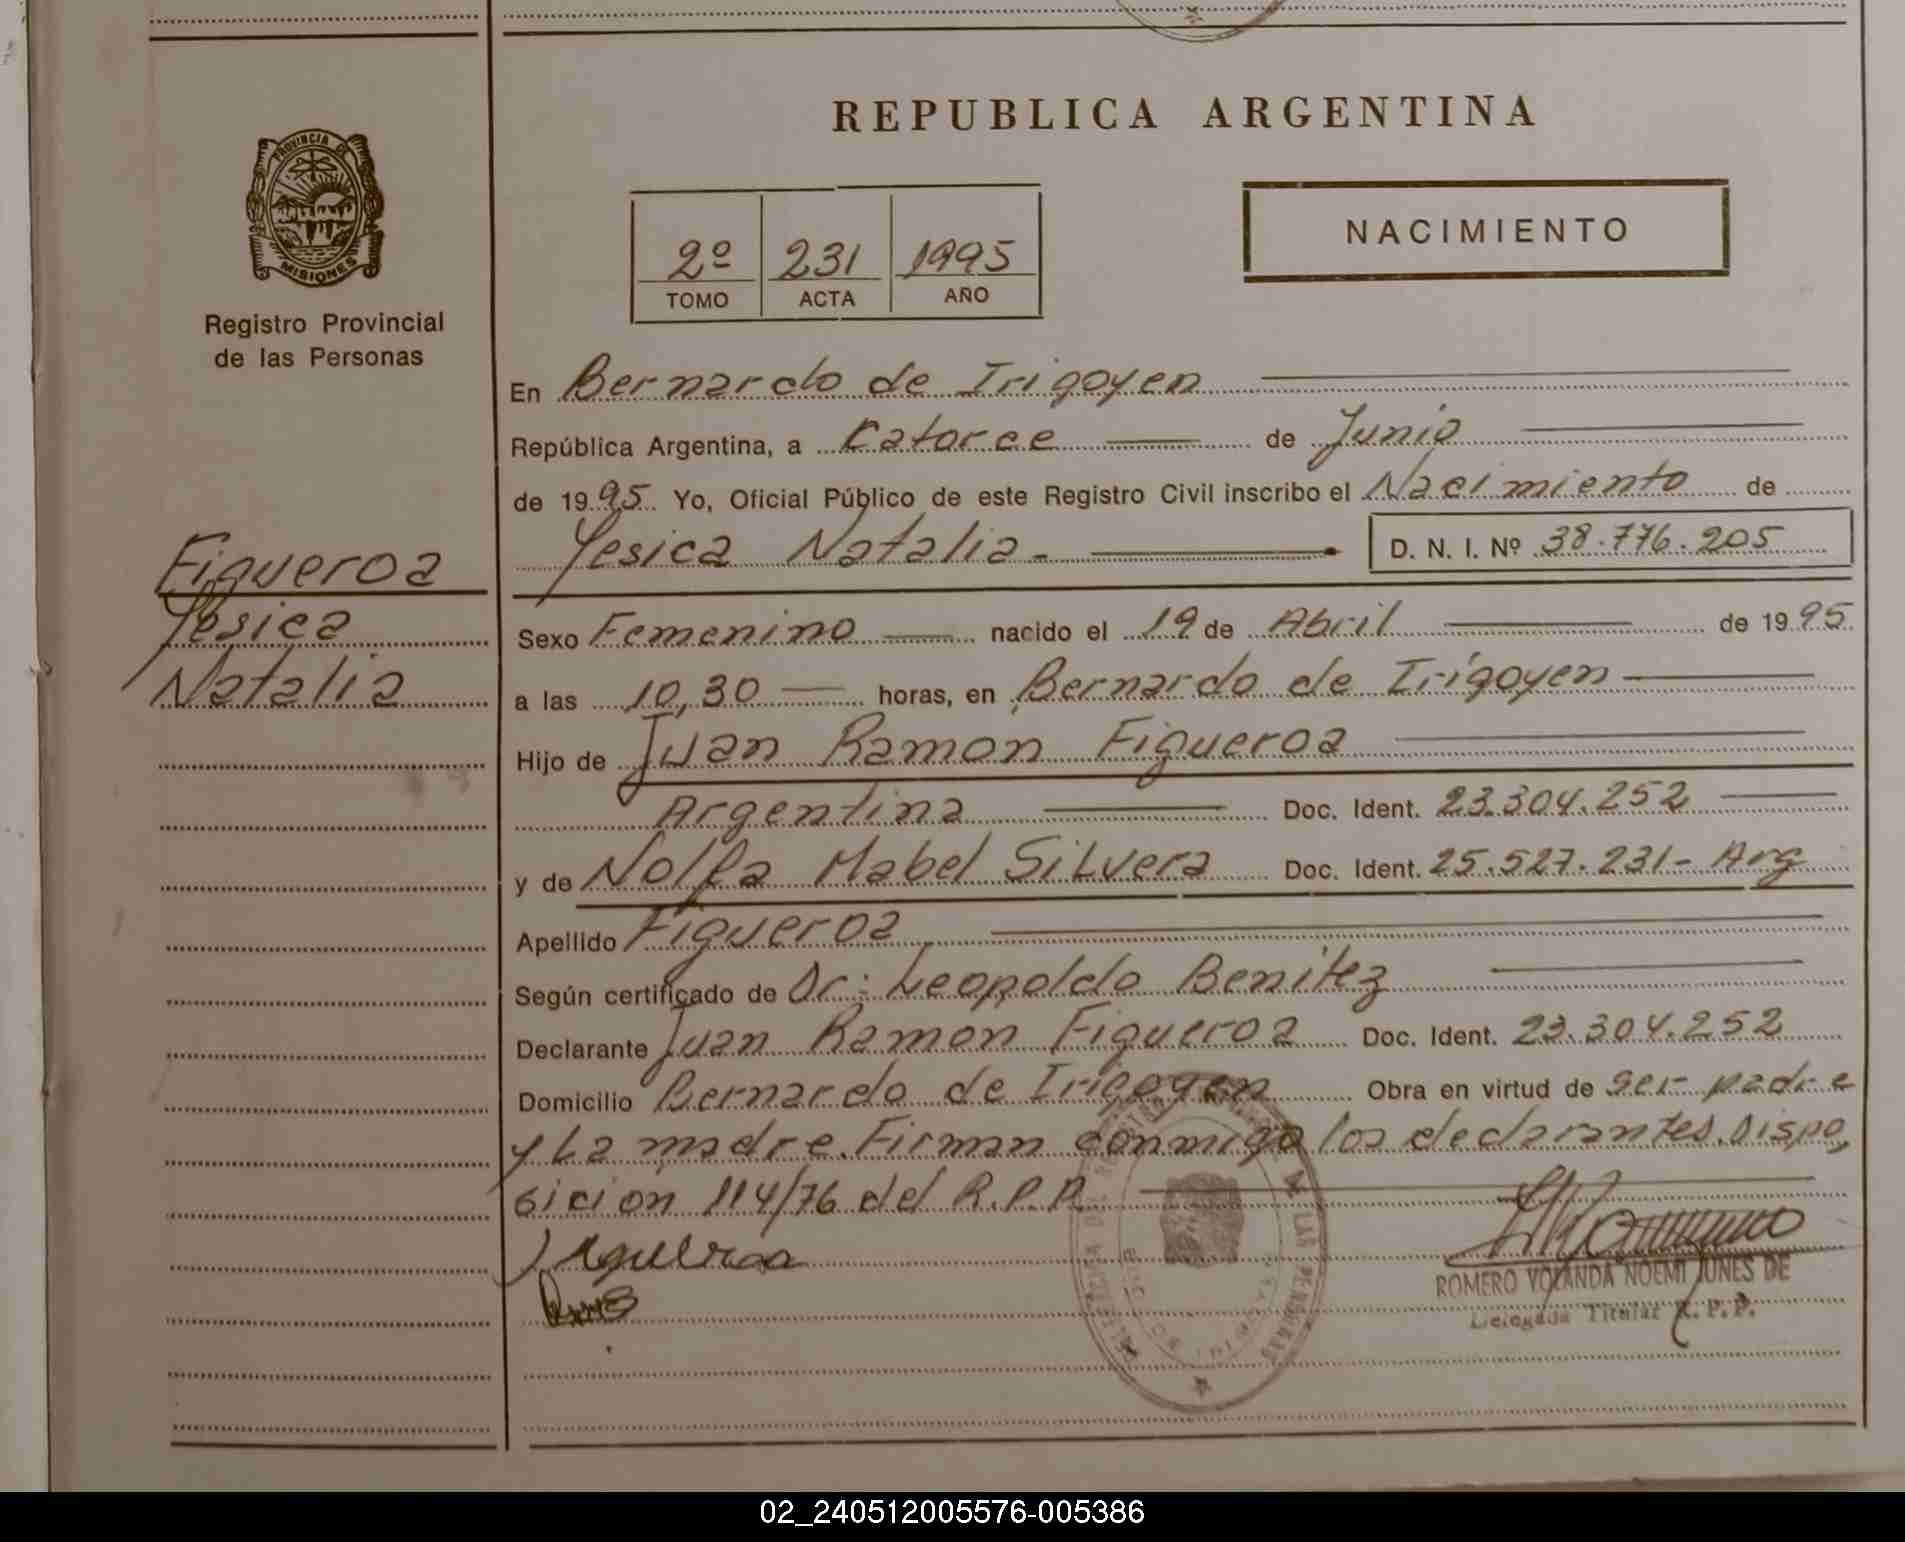 REPUBLICA ARGENTINA
PROVINCIA DE
MISIONES
Registro Provincial
de las Personas
2º 231 1995
TOMO ACTA AÑO
NACIMIENTO
En Bernardo de Irigoyen
República Argentina, a Catorce de Junio
de 1995 Yo, Oficial Público de este Registro Civil inscribo el Nacimiento de
Yesica Natalia - D. N. I. Nº 38.776.205
Figueroa
Yesica
Natalia
Sexo Femenino nacido el 19 de Abril de 1995
a las 10,30 horas, en Bernardo de Irigoyen
Hijo de Juan Ramón Figueroa
Argentina Doc. Ident. 23.304.252
y de Nolfa Mabel Silvera Doc. Ident. 25.527.231- Arg
Apellido Figueroa
Según certificado de Dr: Leopoldo Benítez
Declarante Juan Ramon Figueroa Doc. Ident. 23.304.252
Domicilio Bernardo de Irigoyen Obra en virtud de ser padre
y La madre. Firman conmigo los declarantes. Dispo,
sición 114/76 del R.P.P.
Figueroa
ROMERO YOLANDA NOEMI JUNES DE
Delegada Titular R. P. P.
02_240512005576-005386